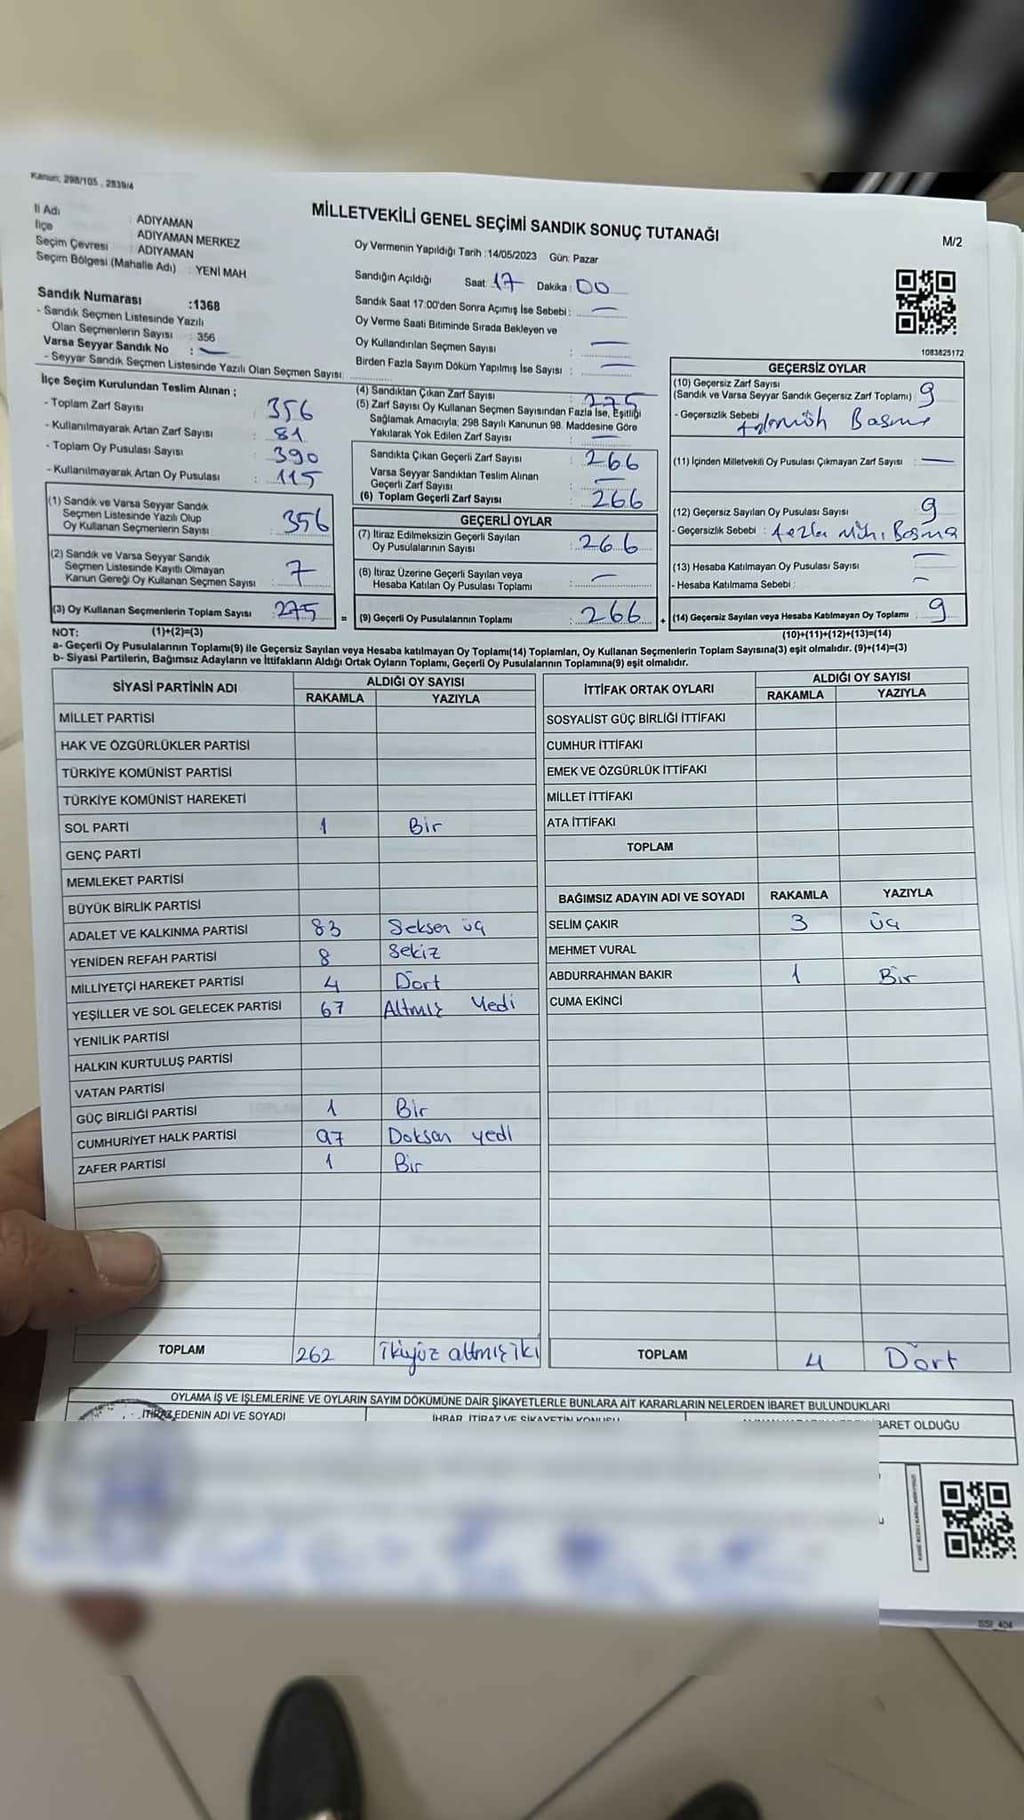 Kanun; 298/105 , 2839/4
MİLLETVEKİLİ GENEL SEÇİMİ SANDIK SONUÇ TUTANAĞI
M/2
İl Adı : ADIYAMAN
İlçe : ADIYAMAN MERKEZ
Seçim Çevresi : ADIYAMAN
Seçim Bölgesi (Mahalle Adı) : YENİ MAH
Sandık Numarası :1368
- Sandık Seçmen Listesinde Yazılı
Olan Seçmenlerin Sayısı : 356
Varsa Seyyar Sandık No : —
- Seyyar Sandık Seçmen Listesinde Yazılı Olan Seçmen Sayısı:
Oy Vermenin Yapıldığı Tarih :14/05/2023 Gün: Pazar
Sandığın Açıldığı Saat: 17 Dakika: 00
Sandık Saat 17.00'den Sonra Açımış İse Sebebi : —
Oy Verme Saati Bitiminde Sırada Bekleyen ve
Oy Kullandırılan Seçmen Sayısı : —
Birden Fazla Sayım Döküm Yapılmış İse Sayısı : —
1083825172
İlçe Seçim Kurulundan Teslim Alınan ;
- Toplam Zarf Sayısı : 356
- Kullanılmayarak Artan Zarf Sayısı : 81
- Toplam Oy Pusulası Sayısı : 390
- Kullanılmayarak Artan Oy Pusulası : 115
(1) Sandık ve Varsa Seyyar Sandık
Seçmen Listesinde Yazılı Olup
Oy Kullanan Seçmenlerin Sayısı : 356
(2) Sandık ve Varsa Seyyar Sandık
Seçmen Listesinde Kayıtlı Olmayan
Kanun Gereği Oy Kullanan Seçmen Sayısı : 7
(3) Oy Kullanan Seçmenlerin Toplam Sayısı : 275
(1)+(2)=(3)
(4) Sandıktan Çıkan Zarf Sayısı : 275
(5) Zarf Sayısı Oy Kullanan Seçmen Sayısından Fazla İse, Eşitliği
Sağlamak Amacıyla; 298 Sayılı Kanunun 98. Maddesine Göre
Yakılarak Yok Edilen Zarf Sayısı : —
Sandıkta Çıkan Geçerli Zarf Sayısı : 266
Varsa Seyyar Sandıktan Teslim Alınan
Geçerli Zarf Sayısı : —
(6) Toplam Geçerli Zarf Sayısı : 266
GEÇERLİ OYLAR
(7) İtiraz Edilmeksizin Geçerli Sayılan
Oy Pusulalarının Sayısı : 266
(8) İtiraz Üzerine Geçerli Sayılan veya
Hesaba Katılan Oy Pusulası Toplamı : —
= (9) Geçerli Oy Pusulalarının Toplamı : 266
GEÇERSİZ OYLAR
(10) Geçersiz Zarf Sayısı : 9
(Sandık ve Varsa Seyyar Sandık Geçersiz Zarf Toplamı)
- Geçersizlik Sebebi :
(11) İçinden Milletvekili Oy Pusulası Çıkmayan Zarf Sayısı : —
(12) Geçersiz Sayılan Oy Pusulası Sayısı : 9
- Geçersizlik Sebebi : Basma
(13) Hesaba Katılmayan Oy Pusulası Sayısı : —
- Hesaba Katılmama Sebebi : —
+ (14) Geçersiz Sayılan veya Hesaba Katılmayan Oy Toplamı : 9
(10)+(11)+(12)+(13)=(14)
NOT:
a- Geçerli Oy Pusulalarının Toplamı(9) ile Geçersiz Sayılan veya Hesaba katılmayan Oy Toplamı(14) Toplamları, Oy Kullanan Seçmenlerin Toplam Sayısına(3) eşit olmalıdır. (9)+(14)=(3)
b- Siyasi Partilerin, Bağımsız Adayların ve İttifakların Aldığı Ortak Oyların Toplamı, Geçerli Oy Pusulalarının Toplamına(9) eşit olmalıdır.
SİYASİ PARTİNİN ADI ALDIĞI OY SAYISI
RAKAMLA YAZIYLA
MİLLET PARTİSİ
HAK VE ÖZGÜRLÜKLER PARTİSİ
TÜRKİYE KOMÜNİST PARTİSİ
TÜRKİYE KOMÜNİST HAREKETİ
SOL PARTİ 1 Bir
GENÇ PARTİ
MEMLEKET PARTİSİ
BÜYÜK BİRLİK PARTİSİ
ADALET VE KALKINMA PARTİSİ 83 Seksen üç
YENİDEN REFAH PARTİSİ 8 Sekiz
MİLLİYETÇİ HAREKET PARTİSİ 4 Dört
YEŞİLLER VE SOL GELECEK PARTİSİ 67 Altmış Yedi
YENİLİK PARTİSİ
HALKIN KURTULUŞ PARTİSİ
VATAN PARTİSİ
GÜÇ BİRLİĞİ PARTİSİ 1 Bir
CUMHURİYET HALK PARTİSİ 97 Doksan yedi
ZAFER PARTİSİ 1 Bir
TOPLAM 262 ikiyüz altmış iki
İTTİFAK ORTAK OYLARI ALDIĞI OY SAYISI
RAKAMLA YAZIYLA
SOSYALİST GÜÇ BİRLİĞİ İTTİFAKI
CUMHUR İTTİFAKI
EMEK VE ÖZGÜRLÜK İTTİFAKI
MİLLET İTTİFAKI
ATA İTTİFAKI
TOPLAM
BAĞIMSIZ ADAYIN ADI VE SOYADI RAKAMLA YAZIYLA
SELİM ÇAKIR 3 üç
MEHMET VURAL
ABDURRAHMAN BAKIR 1 Bir
CUMA EKİNCİ
TOPLAM 4 Dört
OYLAMA İŞ VE İŞLEMLERİNE VE OYLARIN SAYIM DÖKÜMÜNE DAİR ŞİKAYETLERLE BUNLARA AİT KARARLARIN NELERDEN İBARET BULUNDUKLARI
İTİRAZ EDENİN ADI VE SOYADI İHBAR, İTİRAZ VE ŞİKAYETİN KONUSU BARET OLDUĞU
SSI_404